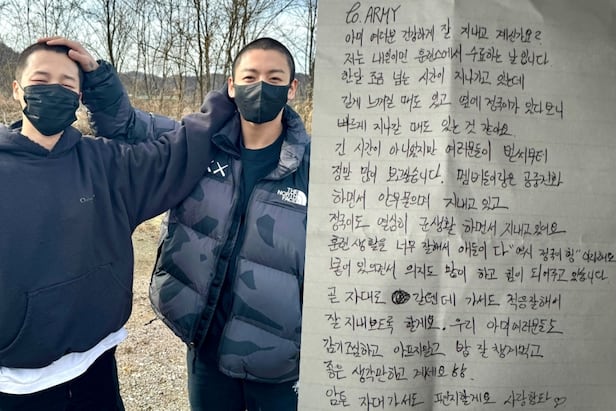 To. ARMY
아미 여러분 건강하게 잘 지내고 계신가요?
저는 내일이면 훈련소에서 수료하는 날입니다
한달 조금 넘는 시간이 지나가고 있는데
길게 느껴질 때도 있고 옆에 정국이가 있다보니
빠르게 지나갈 때도 있는 것 같아요
긴 시간이 아니었지만 여러분들이 벌써부터
정말 많이 보고싶습니다. 멤버들이랑은 공중전화
하면서 안부물으며 지내고 있고
정국이도 열심히 군생활 하면서 지내고있어요
훈련 생활을 너무 잘해서 애들이 다 "역시 정국이 형" 이래요
둘이 있으면서 의지도 많이 하고 힘이 되어주고 있습니다
곧 자대로 갈텐데 가서도 적응잘해서
잘 지내보도록 할게요. 우리 아미여러분들도
감기조심하고 아프지말고 밥 잘 챙겨먹고
좋은 생각만하고 계세요
암튼 자대가서도 편지할게요 사랑합니다
THE
NORTH
FACE